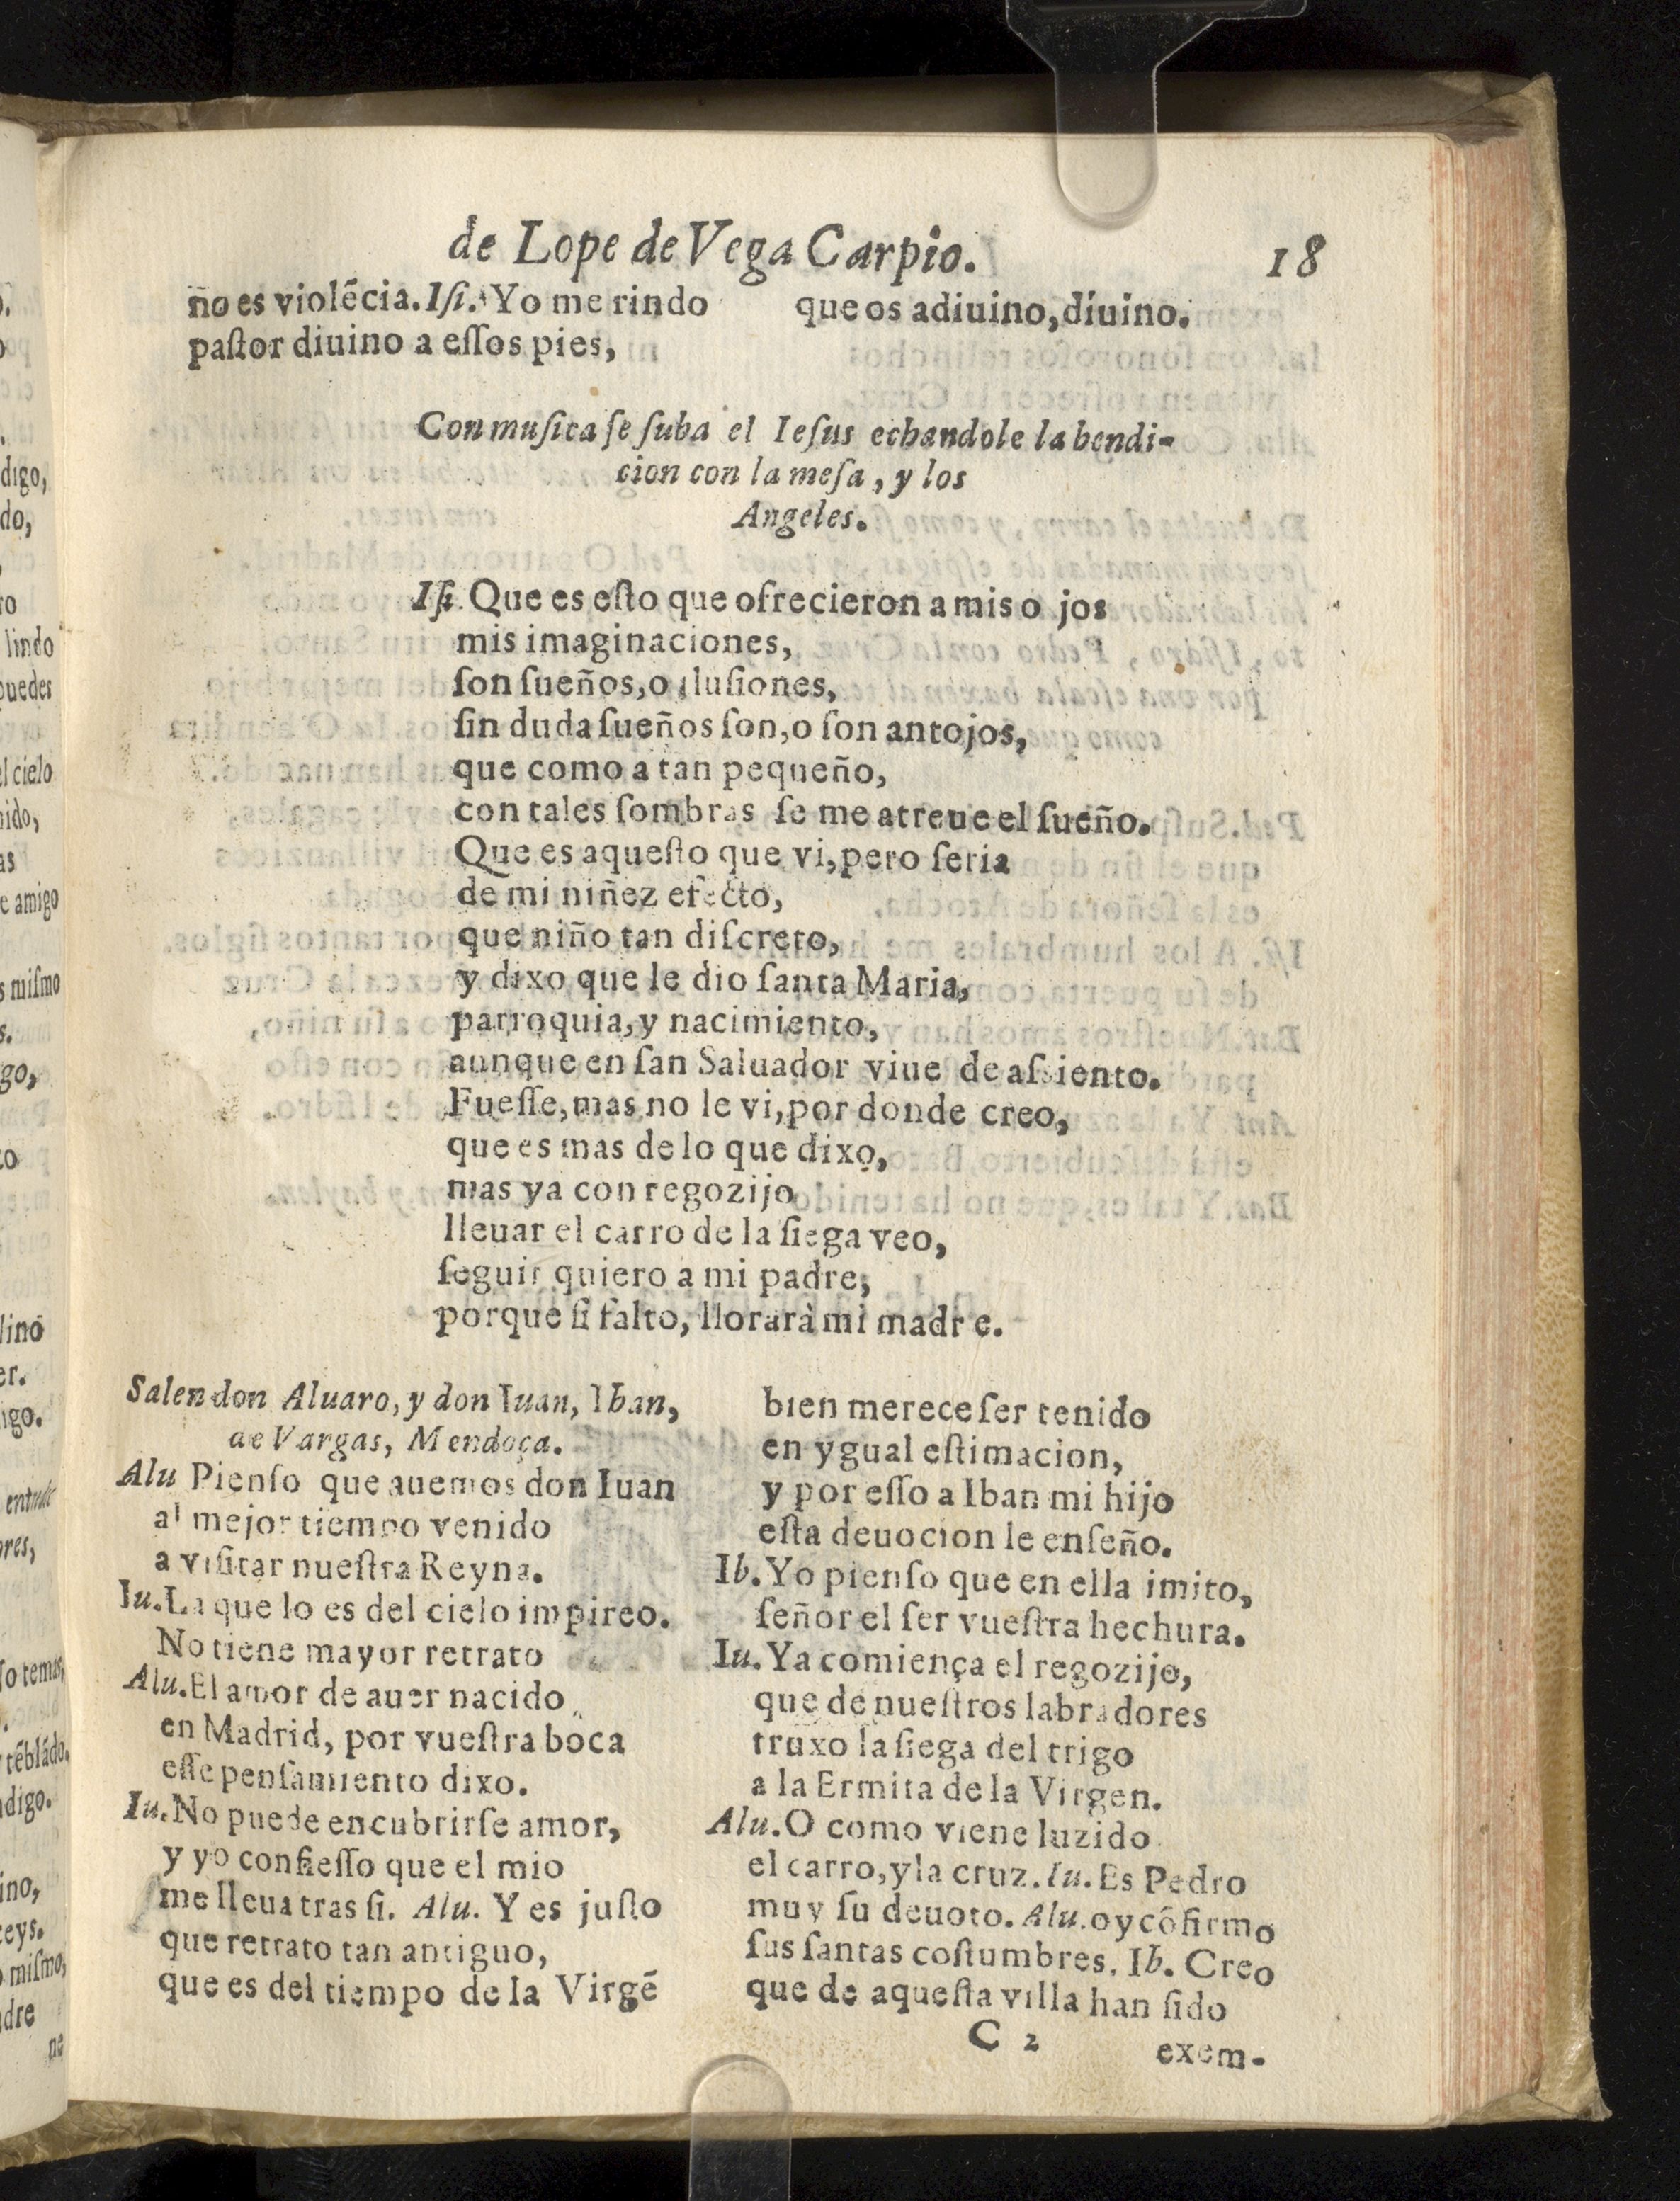 de Lope de Vega Carpio. 18
no es violẽcia. Iſi. Yo me rindo
paſtor diuino a eſſos pies,
que os adiuino, diuino.
Con muſica ſe ſuba el Ieſus echandole la bendi-
cion con la meſa, y los
Angeles.
Iſi. Que es eſto que ofrecieron a mis o jos
mis imaginaciones,
ſon ſueños, o iluſiones,
ſin duda ſueños ſon, o ſon antojos,
que como a tan pequeño,
con tales ſombras ſe me atreue el ſueño.
Que es aqueſto que vi, pero ſeria
de mi niñez efecto,
que niño tan diſcreto,
y dixo que le dio ſanta Maria,
parroquia, y nacimiento,
aunque en ſan Saluador viue de aſsiento.
Fueſſe, mas no le vi, por donde creo,
que es mas de lo que dixo,
mas ya con regozijo
lleuar el carro de la ſiega veo,
ſeguir quiero a mi padre,
porque ſi falto, llorarà mi madre.
Salen don Aluaro, y don Iuan, Iban,
de Vargas, Mendoça.
Alu Pienſo que auemos don Iuan
al mejor tiempo venido
a viſitar nueſtra Reyna.
Iu. La que lo es del cielo impireo.
No tiene mayor retrato
Alu. El amor de auer nacido
en Madrid, por vueſtra boca
eſſe penſamiento dixo.
Iu. No puede encubrirſe amor,
y yo confieſſo que el mio
me lleua tras ſi. Alu. Y es juſto
que retrato tan antiguo,
que es del tiempo de la Virgẽ
bien merece ſer tenido
en ygual eſtimacion,
y por eſſo a Iban mi hijo
eſta deuocion le enſeño.
Ib. Yo pienſo que en ella imito,
ſeñor el ſer vueſtra hechura.
Iu. Ya comiença el regozijo,
que de nueſtros labradores
truxo la ſiega del trigo
a la Ermita de la Virgen.
Alu. O como viene luzido
el carro, y la cruz. Iu. Es Pedro
muy ſu deuoto. Alu. oy cõfirmo
ſus ſantas coſtumbres. Ib. Creo
que de aqueſta villa han ſido
C 2 exem-